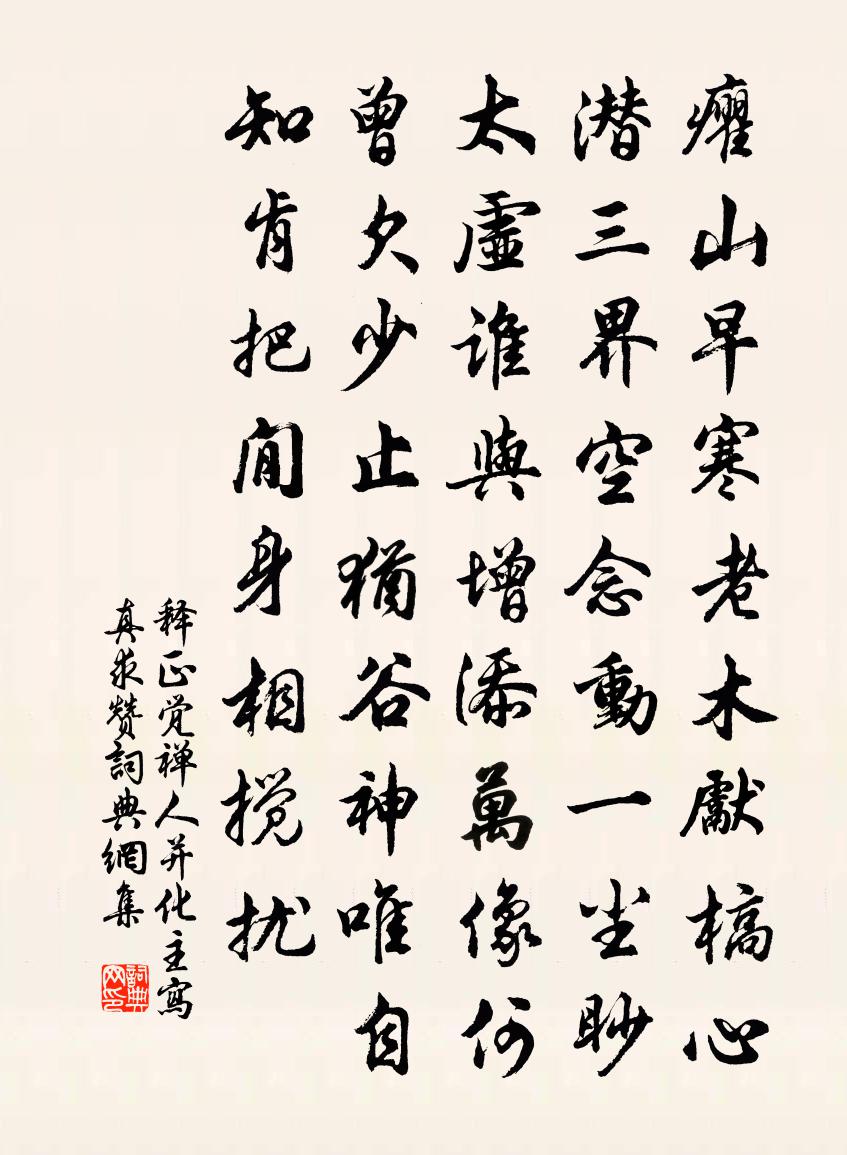 癯山早寒老木獻槁心
潜三界空念動一尘眇
太虛谁與增添萬像何
曾欠少止猶谷神唯自
知肯把閒身相搅扰
释正觉禅人并化主寫
真求赞詞典網集
詞典网印